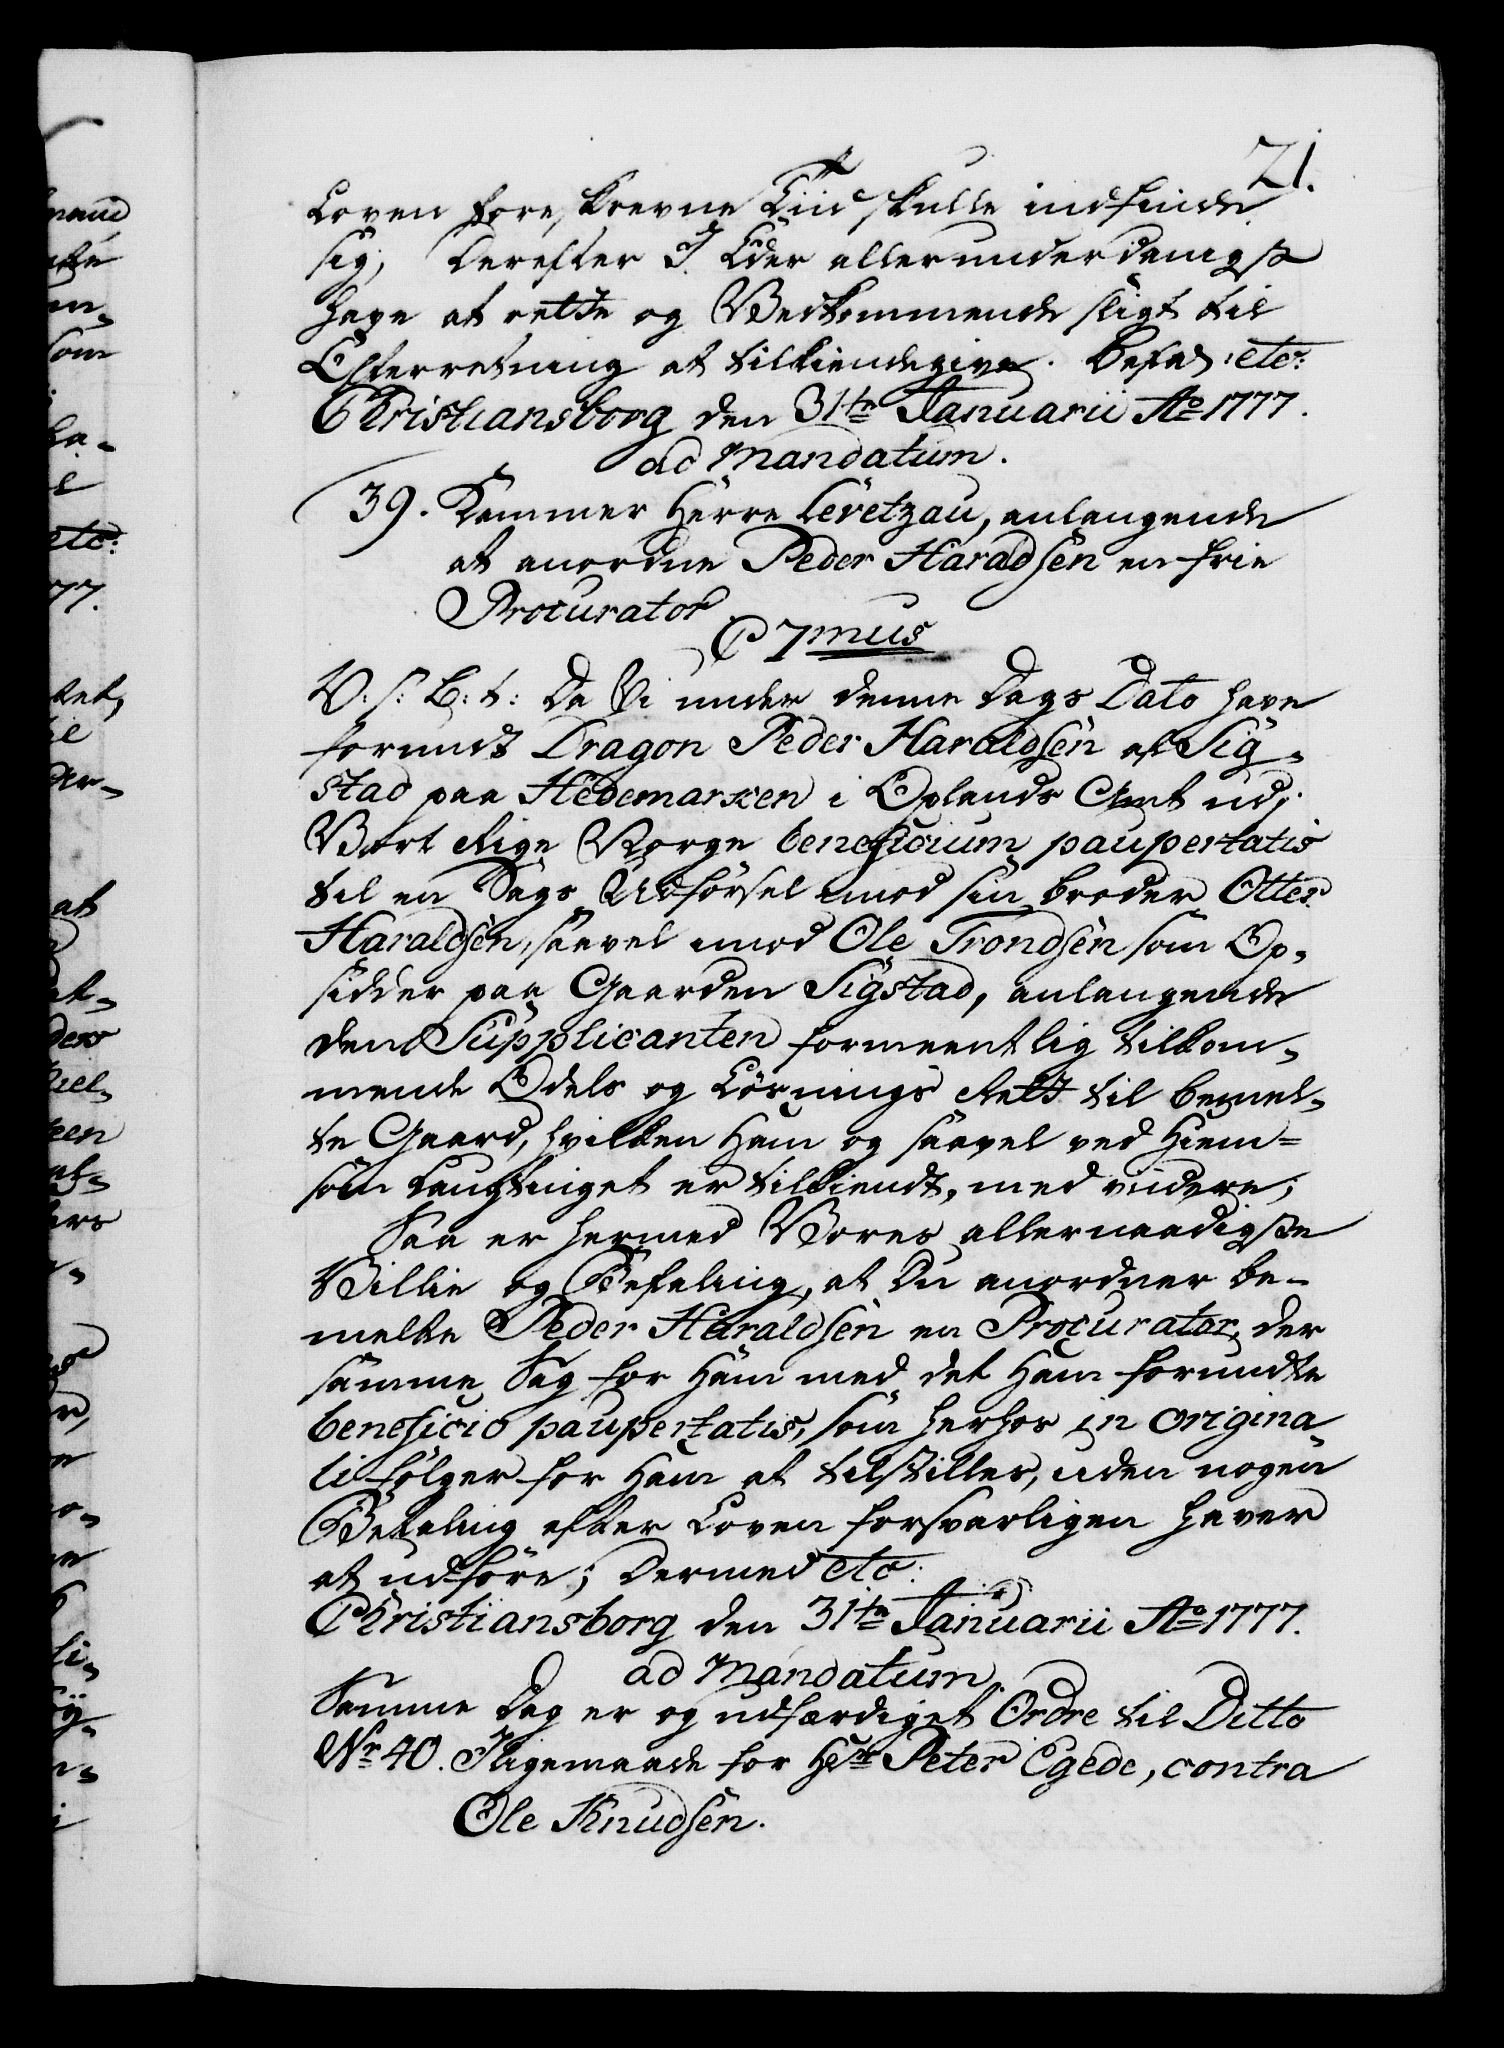 21.
Loven foreskrevne Tiid skulle indfinde
sig; Derefter I Eder allerunderdanigst
have at rette og Vedkommende sligt til
Efterretning at tilkiendegive. Befal: etc:
Christiansborg den 31te Januarii Ao 1777.
ad Mandatum.
39. Kammer Herre Levetzau, anlangende
at anordne Peder Haradsen en frie
Procurator.
C 7mus
V: s: B: t: Da Vi under denne Dags Dato have
forundt Dragon Peder Haraldsen af Sig-
stad paa Hedemarken i Oplands Amt udi
Vort Rige Norge beneficium paupertatis
til en Sags Udførsel imod sin broder Otter
Haraldsen, saavel imod Ole Trondsen som Op-
sidder paa Gaarden Sigstad, anlangende
den Supplicanten formeentlig tilkom-
mende Odels og Løsnings Rett til bemel-
te Gaard, hvilken Ham og saavel ved Hiem=
som Laugtinget er tilkiendt, med viidere;
Saa er hermed Vores allernaadigste
Villie og Befaling, at Du anordner be-
melte Peder Haraldsen en Procurator, der
samme Sag for Ham med det Ham forundte
beneficio paupertatis, som herhos in origina-
li følger for Ham at tilstilles, uden nogen
Betaling efter Loven forsvarligen haver
at udføre; Dermed etc:
Christiansborg den 31te Januarii Ao 1777.
ad Mandatum.
Samme Dag er og udfærdiget Ordre til Ditto
Nr 40. Iligemaade for Hr Peter Egede, contra
Ole Knudsen.